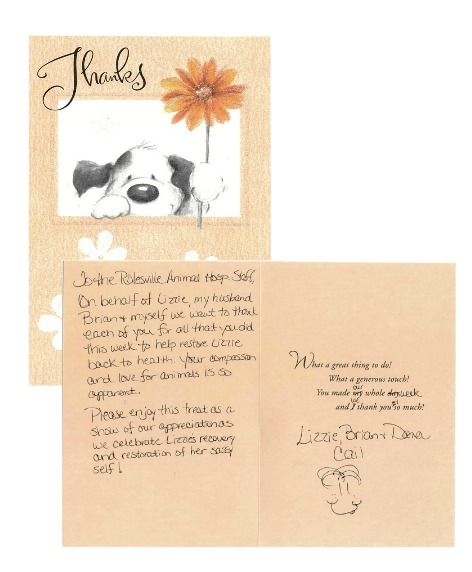 Thanks
To the Rolesville Animal Hosp Staff,
On behalf of Lizzie, my husband
Brian + myself we want to thank
each of you for all that you did
this week to help restore Lizzie
back to health. Your compassion
and love for animals is so
apparent.
Please enjoy this treat as a
show of our appreciation as
we celebrate Lizzies recovery
and restoration of her sassy
self!
What a great thing to do!
What a generous touch!
our
You made my whole day week
we
and I thank you so much!
Lizzie, Brian +
Cail